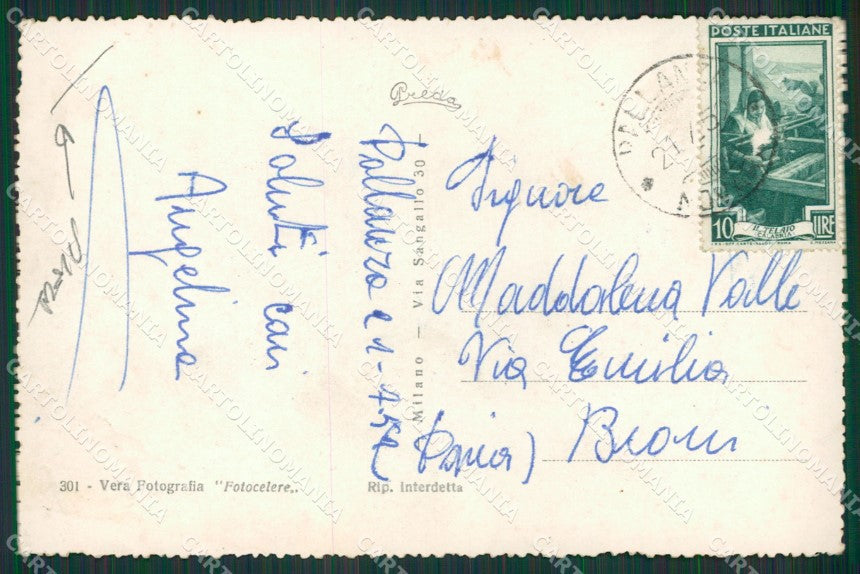 Breda
Pallanza 21-7.52
Saluti cari
Angelina
Signora
Maddalena Valle
Via Emilia
Broni
(Pavia)
Milano — Via Sangallo 30
301 - Vera Fotografia "Fotocelere„
Rip. Interdetta
POSTE ITALIANE
10 LIRE
IL TELAIO
CALABRIA
CARTOLINOMANIA